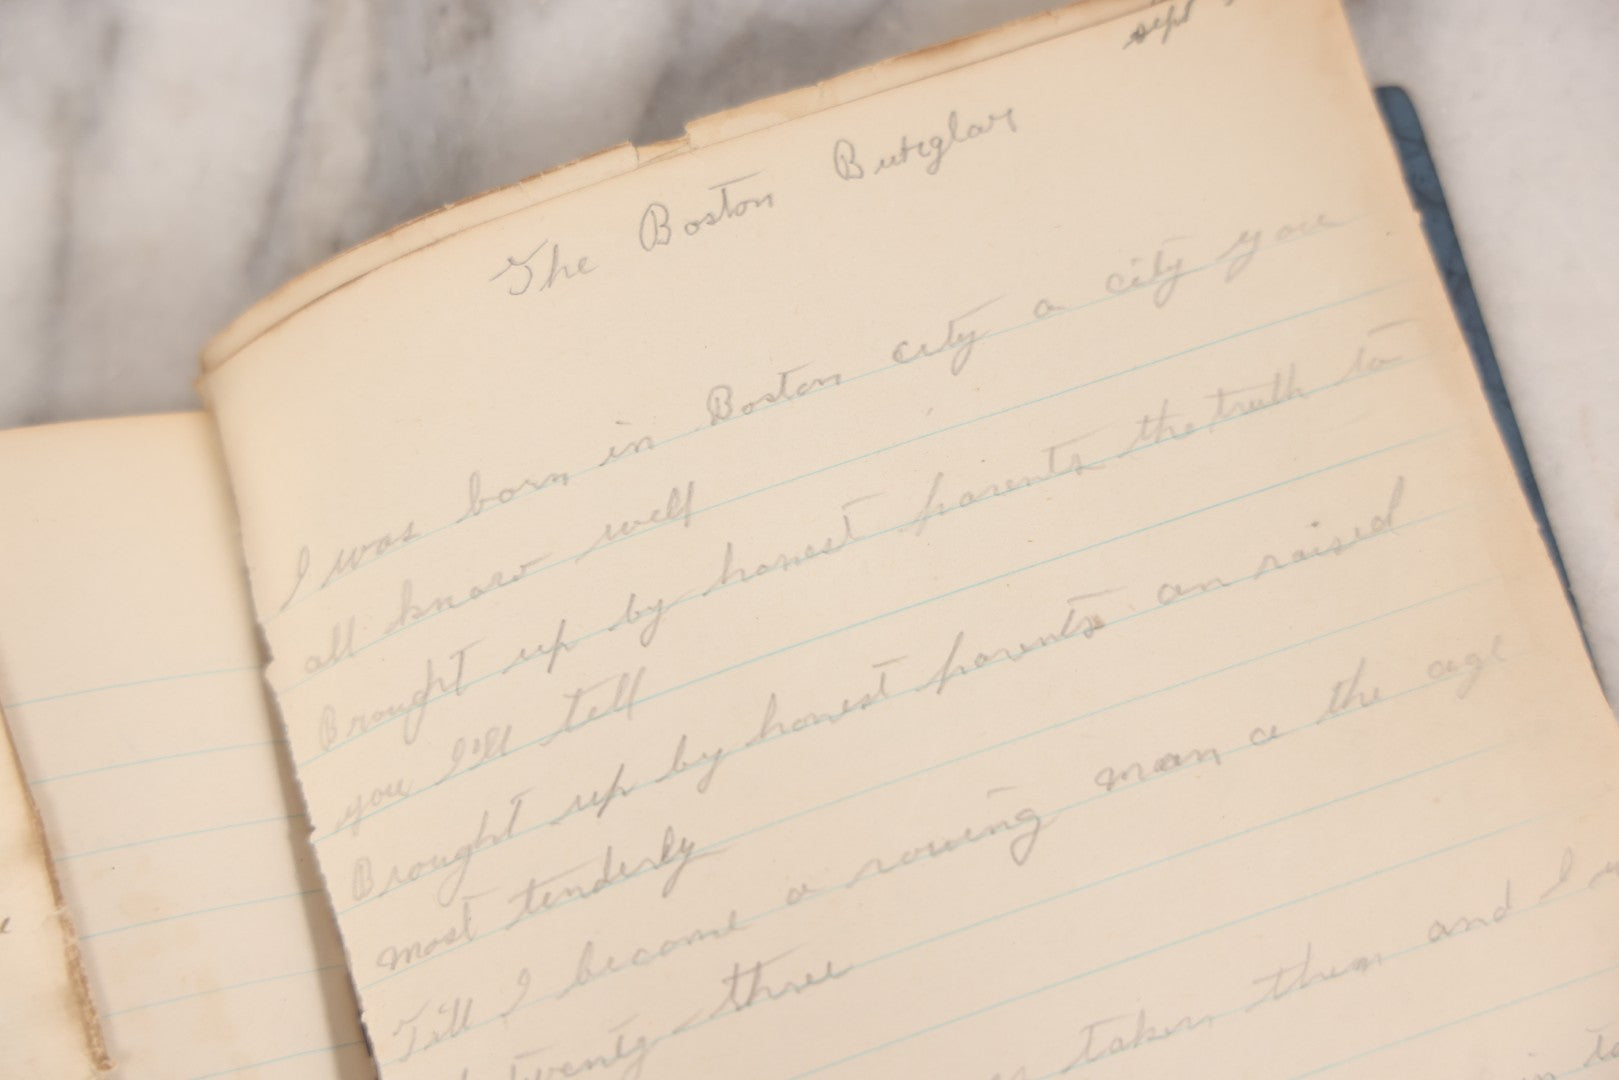 sept
The Boston Burglar
I was born in Boston city a city you
all know well
Brought up by honest parents the truth to
you I'll tell
Brought up by honest parents an raised
most tenderly
Till I became a roving man a the age
twenty three
taken then and I
in